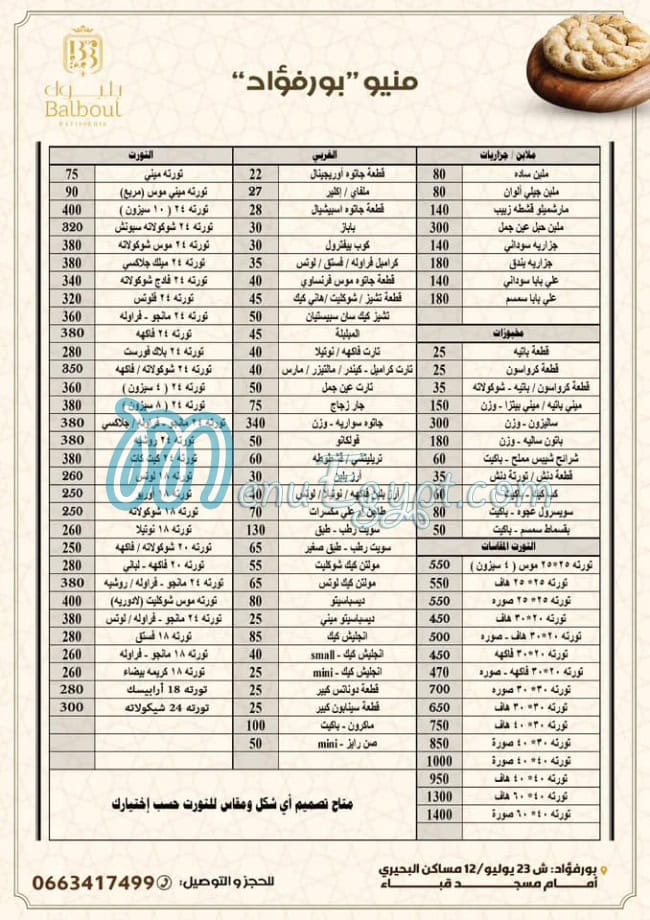 بلبول
Balboul
PATISSERIE
منيو "بورفؤاد"
ملابن / جزاريات
ملبن ساده 80
ملبن جيلي ألوان 80
مارشميلو قشطه زبيب 140
ملبن حبل عين جمل 300
جزاريه سوداني 140
جزاريه بندق 180
علي بابا سوداني 140
علي بابا سمسم 180
مخبوزات
قطعة باتيه 25
قطعة كرواسون 25
قطعة كرواسون / باتيه - شوكولاته 35
ميني باتيه / ميني بيتزا - وزن 150
ساليزون - وزن 300
باتون ساليه - وزن 180
شرائح شيبس مملح - باكيت 60
قطعة دنش / تورتة دنش 35
باكيت 60
سويسرول عجوه - باكيت 80
بقسماط سمسم - باكيت 50
التورت المقاسات
تورته ٢٥*٢٥ موس ( ٤ سيزون ) 550
تورته ٢٥*٢٥ هاف 550
تورته ٢٥*٢٥ صوره 550
تورته ٢٠*٣٠ هاف 450
تورته ٢٠*٣٠ هاف - صوره 500
تورته ٢٠*٣٠ فاكهه 450
تورته ٢٠*٣٠ فاكهه - صوره 470
تورته ٣٠*٣٠ صوره 700
تورته ٣٠*٣٠ هاف 650
تورته ٣٠*٤٠ هاف 750
تورته ٣٠*٤٠ صورة 850
تورته ٤٠*٤٠ صورة 1000
تورته ٤٠*٤٠ هاف 950
تورته ٤٠*٦٠ هاف 1300
تورته ٤٠*٦٠ صورة 1400
الغربي
قطعة جاتوه أوريجينال 22
ملفاي / إكلير 27
قطعة جاتوه اسبيشيال 28
باباز 30
كوب بيفترول 30
كراميل فراوله / فستق / لوتس 35
قطعة جاتوه موس فرنساوي 40
قطعة تشيز / شوكليت /هاني كيك 45
تشيز كيك سان سبيستيان 50
المبلبلة 45
تارت فاكهه / نوتيلا 40
تارت كراميل - كيندر / مالتيزر / مارس 40
تارت عين جمل 50
جار زجاج 75
جاتوه سواريه - وزن 340
فولكانو 50
تريليتشي / قشطوطه 60
أرز بلبن 30
أرز بلبن فاكهه / نوتيلا / لوتس 40
طاجن أم علي مكسرات 70
سويت رطب - طبق 130
سويت رطب - طبق صغير 65
مولتن كيك شوكليت 55
مولتن كيك لوتس 65
ديسباسيتو 80
ديسباسيتو ميني 25
انجليش كيك 85
انجليش كيك - small 40
انجليش كيك - mini 25
قطعة دوناتس كبير 25
قطعة سينابون كبير 25
ماكرون - باكيت 100
صن رايز - mini 50
التورت
تورته ميني 75
تورته ميني موس (مربع) 90
تورته ٢٤ ( ١٠ سيزون ) 400
تورته ٢٤ شوكولاته سبونش 320
تورته ٢٤ موس شوكولاته 380
تورته ٢٤ ميلك جلاكسي 380
تورته ٢٤ فادج شوكولاته 340
تورته ٢٤ فلوتس 320
تورته ٢٤ مانجو - فراوله 360
تورته ٢٤ فاكهه 380
تورته ٢٤ بلاك فورست 280
تورته ٢٤ شوكولاته / فاكهه 350
تورته ٢٤ ( ٤ سيزون ) 360
تورته ٢٤ ( ٨ سيزون ) 380
تورته ٢٤ مانجو - فراوله / جلاكسي 380
تورته ٢٤ روشيه 380
تورته ٢٤ كيت كات 380
تورته ١٨ لوتس 260
تورته ١٨ أوريو 250
تورته ١٨ شوكولاته 250
تورته ١٨ نوتيلا 260
تورته ٢٠ شوكولاته / فاكهه 250
تورته ٢٠ فاكهه - لباني 280
تورته ٢٤ مانجو - فراوله / روشيه 380
تورته موس شوكليت (لادوريه) 400
تورته ٢٤ مانجو - فراوله / لوتس 380
تورته ١٨ فستق 280
تورته ١٨ مانجو - فراوله 260
تورته ١٨ كريمه بيضاء 260
تورته 18 أرابيسك 280
تورته 24 شيكولاته 300
متاح تصميم أي شكل ومقاس للتورت حسب إختيارك
MenuEgypt.com
بورفؤاد: ش 23 يوليو/12 مساكن البحيري
أمام مسجد قباء
للحجز و التوصيل: 0663417499